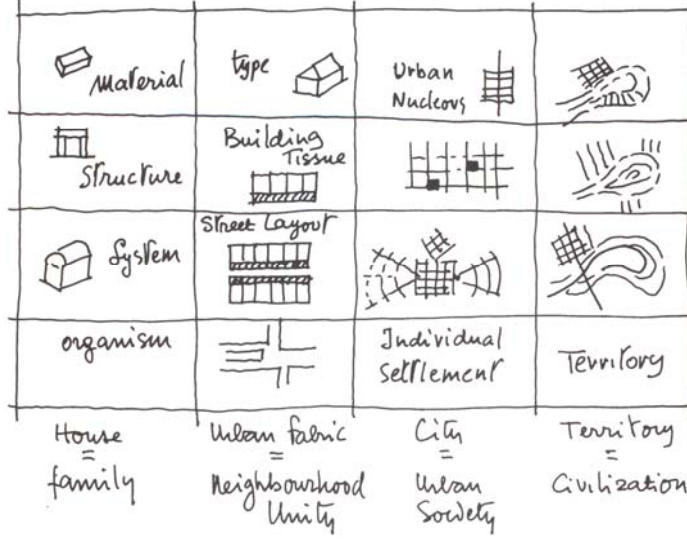 Material
type
Urban
Nucleous
Structure
Building
Tissue
System
Street Layout
organism
Individual
Settlement
Territory
House
=
family
Urban fabric
=
Neighbourhood
Unity
City
=
Urban
Society
Territory
=
Civilization